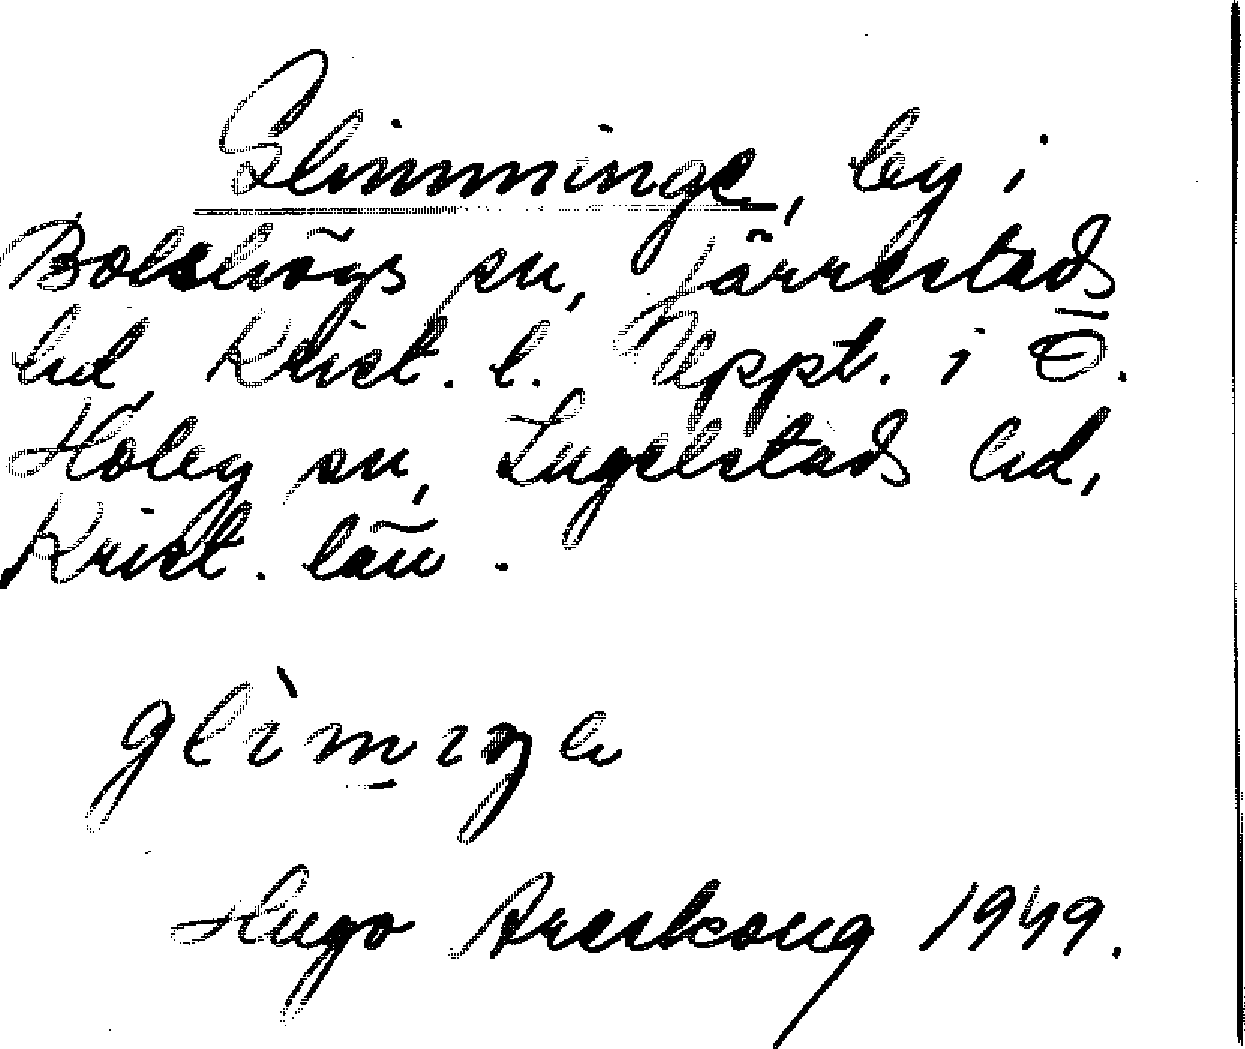 Glimminge, by i
Bolshögs sn, Järrestads
hd, Krist. l. Uppt. i Ö.
Hoby sn, Ingelstads hd,
Krist. län.
glìmiŋe
Hugo Areskoug 1949.